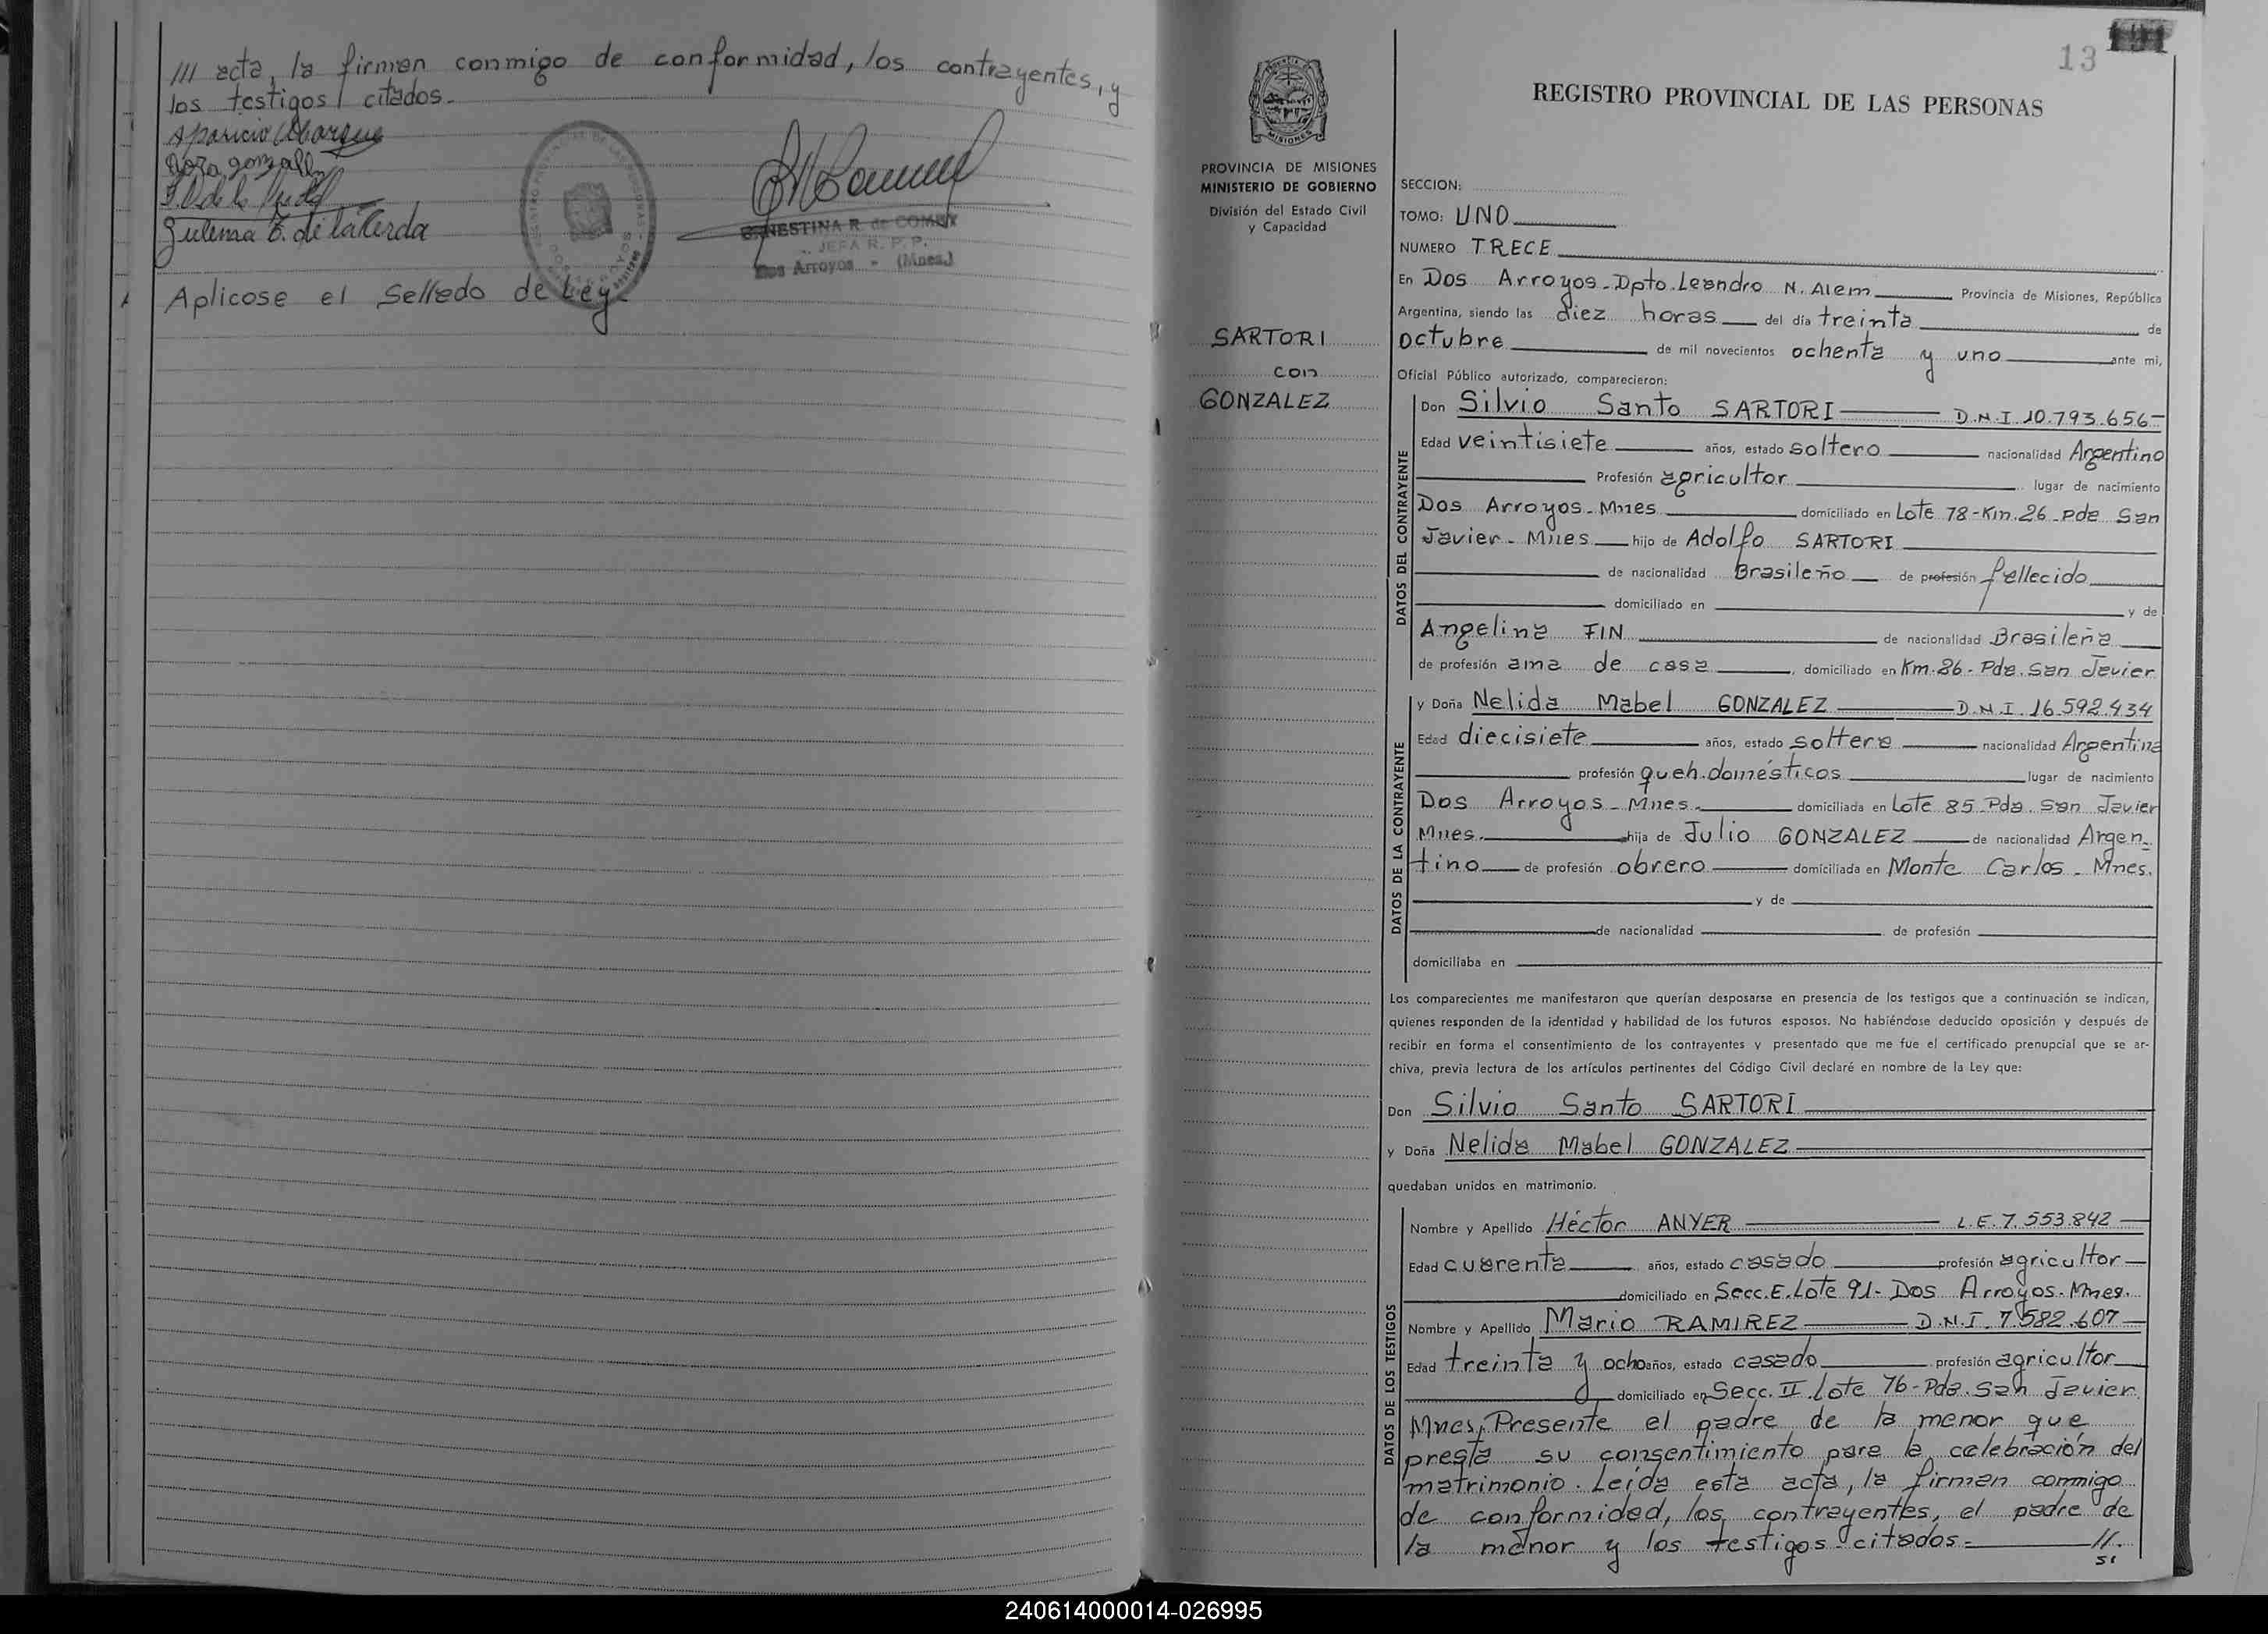 /// acta, la firman conmigo de conformidad, los contrayentes, y
los testigos citados.-
Aparicio
Zulema E. de la Cerda
ERNESTINA R. de COMEX
JEFA R. P. P.
Dos Arroyos - (Mnes.)
Aplicose el Sellado de Ley.
13
MISIONES
PROVINCIA DE MISIONES
MINISTERIO DE GOBIERNO
División del Estado Civil
y Capacidad
SARTORI
con
GONZALEZ
REGISTRO PROVINCIAL DE LAS PERSONAS
SECCION:
TOMO: UNO
NUMERO TRECE
En Dos Arroyos-Dpto. Leandro N. Alem Provincia de Misiones, República
Argentina, siendo las diez horas del día treinta de
octubre de mil novecientos ochenta y uno ante mi,
Oficial Público autorizado, comparecieron:
DATOS DEL CONTRAYENTE
Don Silvio Santo SARTORI D.N.I 10.793.656-
Edad veintisiete años, estado soltero nacionalidad Argentino
Profesión agricultor lugar de nacimiento
Dos Arroyos-Mnes domiciliado en Lote 78-Km.26-Pda San
Javier-Mnes hijo de Adolfo SARTORI
de nacionalidad Brasileño de profesión fallecido
domiciliado en y de
Angelina FIN de nacionalidad Brasileña
de profesión ama de casa, domiciliado en Km.26-Pda. San Javier
DATOS DE LA CONTRAYENTE
y Doña Nelida Mabel GONZALEZ D.N.I. 16.592.434
Edad diecisiete años, estado soltera nacionalidad Argentina
profesión queh.domésticos lugar de nacimiento
Dos Arroyos-Mnes. domiciliada en Lote 85-Pda. San Javier
Mnes. hija de Julio GONZALEZ de nacionalidad Argen-
tino de profesión obrero domiciliada en Monte Carlos-Mnes.
y de
de nacionalidad de profesión
domiciliaba en
Los comparecientes me manifestaron que querían desposarse en presencia de los testigos que a continuación se indican,
quienes responden de la identidad y habilidad de los futuros esposos. No habiéndose deducido oposición y después de
recibir en forma el consentimiento de los contrayentes y presentado que me fue el certificado prenupcial que se ar-
chiva, previa lectura de los artículos pertinentes del Código Civil declaré en nombre de la Ley que:
Don Silvio Santo SARTORI
y Doña Nelida Mabel GONZALEZ
quedaban unidos en matrimonio.
DATOS DE LOS TESTIGOS
Nombre y Apellido Héctor ANYER L.E.7.553.842
Edad cuarenta años, estado casado profesión agricultor
domiciliado en Secc.E.Lote 91-Dos Arroyos-Mnes.
Nombre y Apellido Mario RAMIREZ D.N.I. 7.582.607
Edad treinta y ocho años, estado casado profesión agricultor
domiciliado en Secc. II Lote 76-Pda. San Javier
Mnes. Presente el padre de la menor que
presta su consentimiento para la celebración del
matrimonio. Leída esta acta, la firman conmigo
de conformidad, los contrayentes, el padre de
la menor y los testigos citados.- //.
240614000014-026995